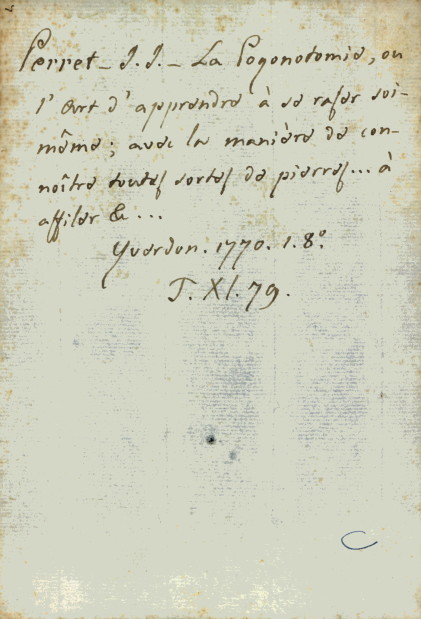 Perret - J. J. - La Pogonotomie, ou
l'Art d'apprendre à se raser soi-
même; avec la manière de con-
noître toutes sortes de pierres... à
affiler & ...
Yverdon. 1770. 1. 8.º
T. XI. 79.
C